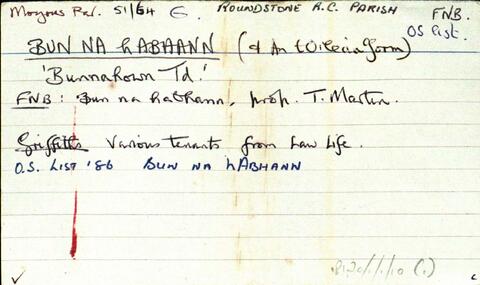 Moyrus Par. 51/64 G. ROUNDSTONE R.C. PARISH FNB.
OS list.
BUN NA hABHANN (& An tOileáin form)
'Bunnahown Td.'
FNB: Bun na habhann, prop. T. Martin.
Griffiths Various tenants from Law Life.
O.S. LIST '86 BUN NA hABHANN